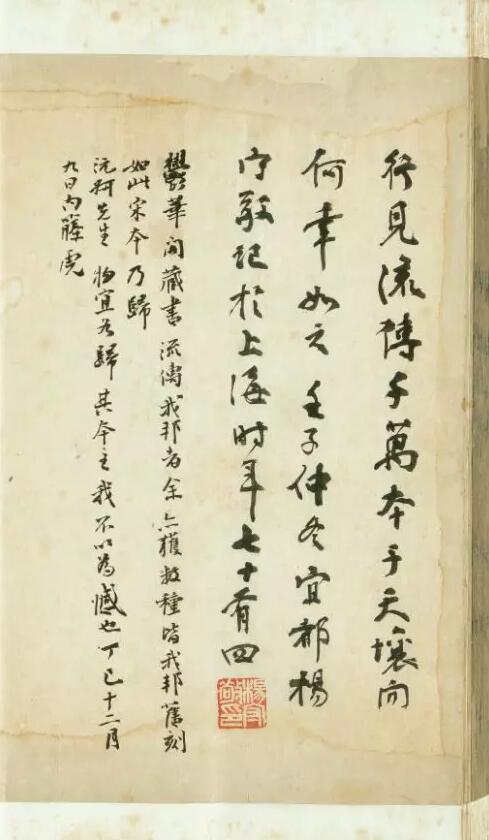 行見流傳千萬本于天壤间
何幸如之壬子仲冬宜都楊
守敬記於上海时年七十有四
楊守敬印
鬱華閣藏書流傳我邦者余亦獲數種皆我邦舊刻
如此宋本乃歸
沅叔先生物宜歸其本主我不以為憾也丁巳十二月
九日内藤虎